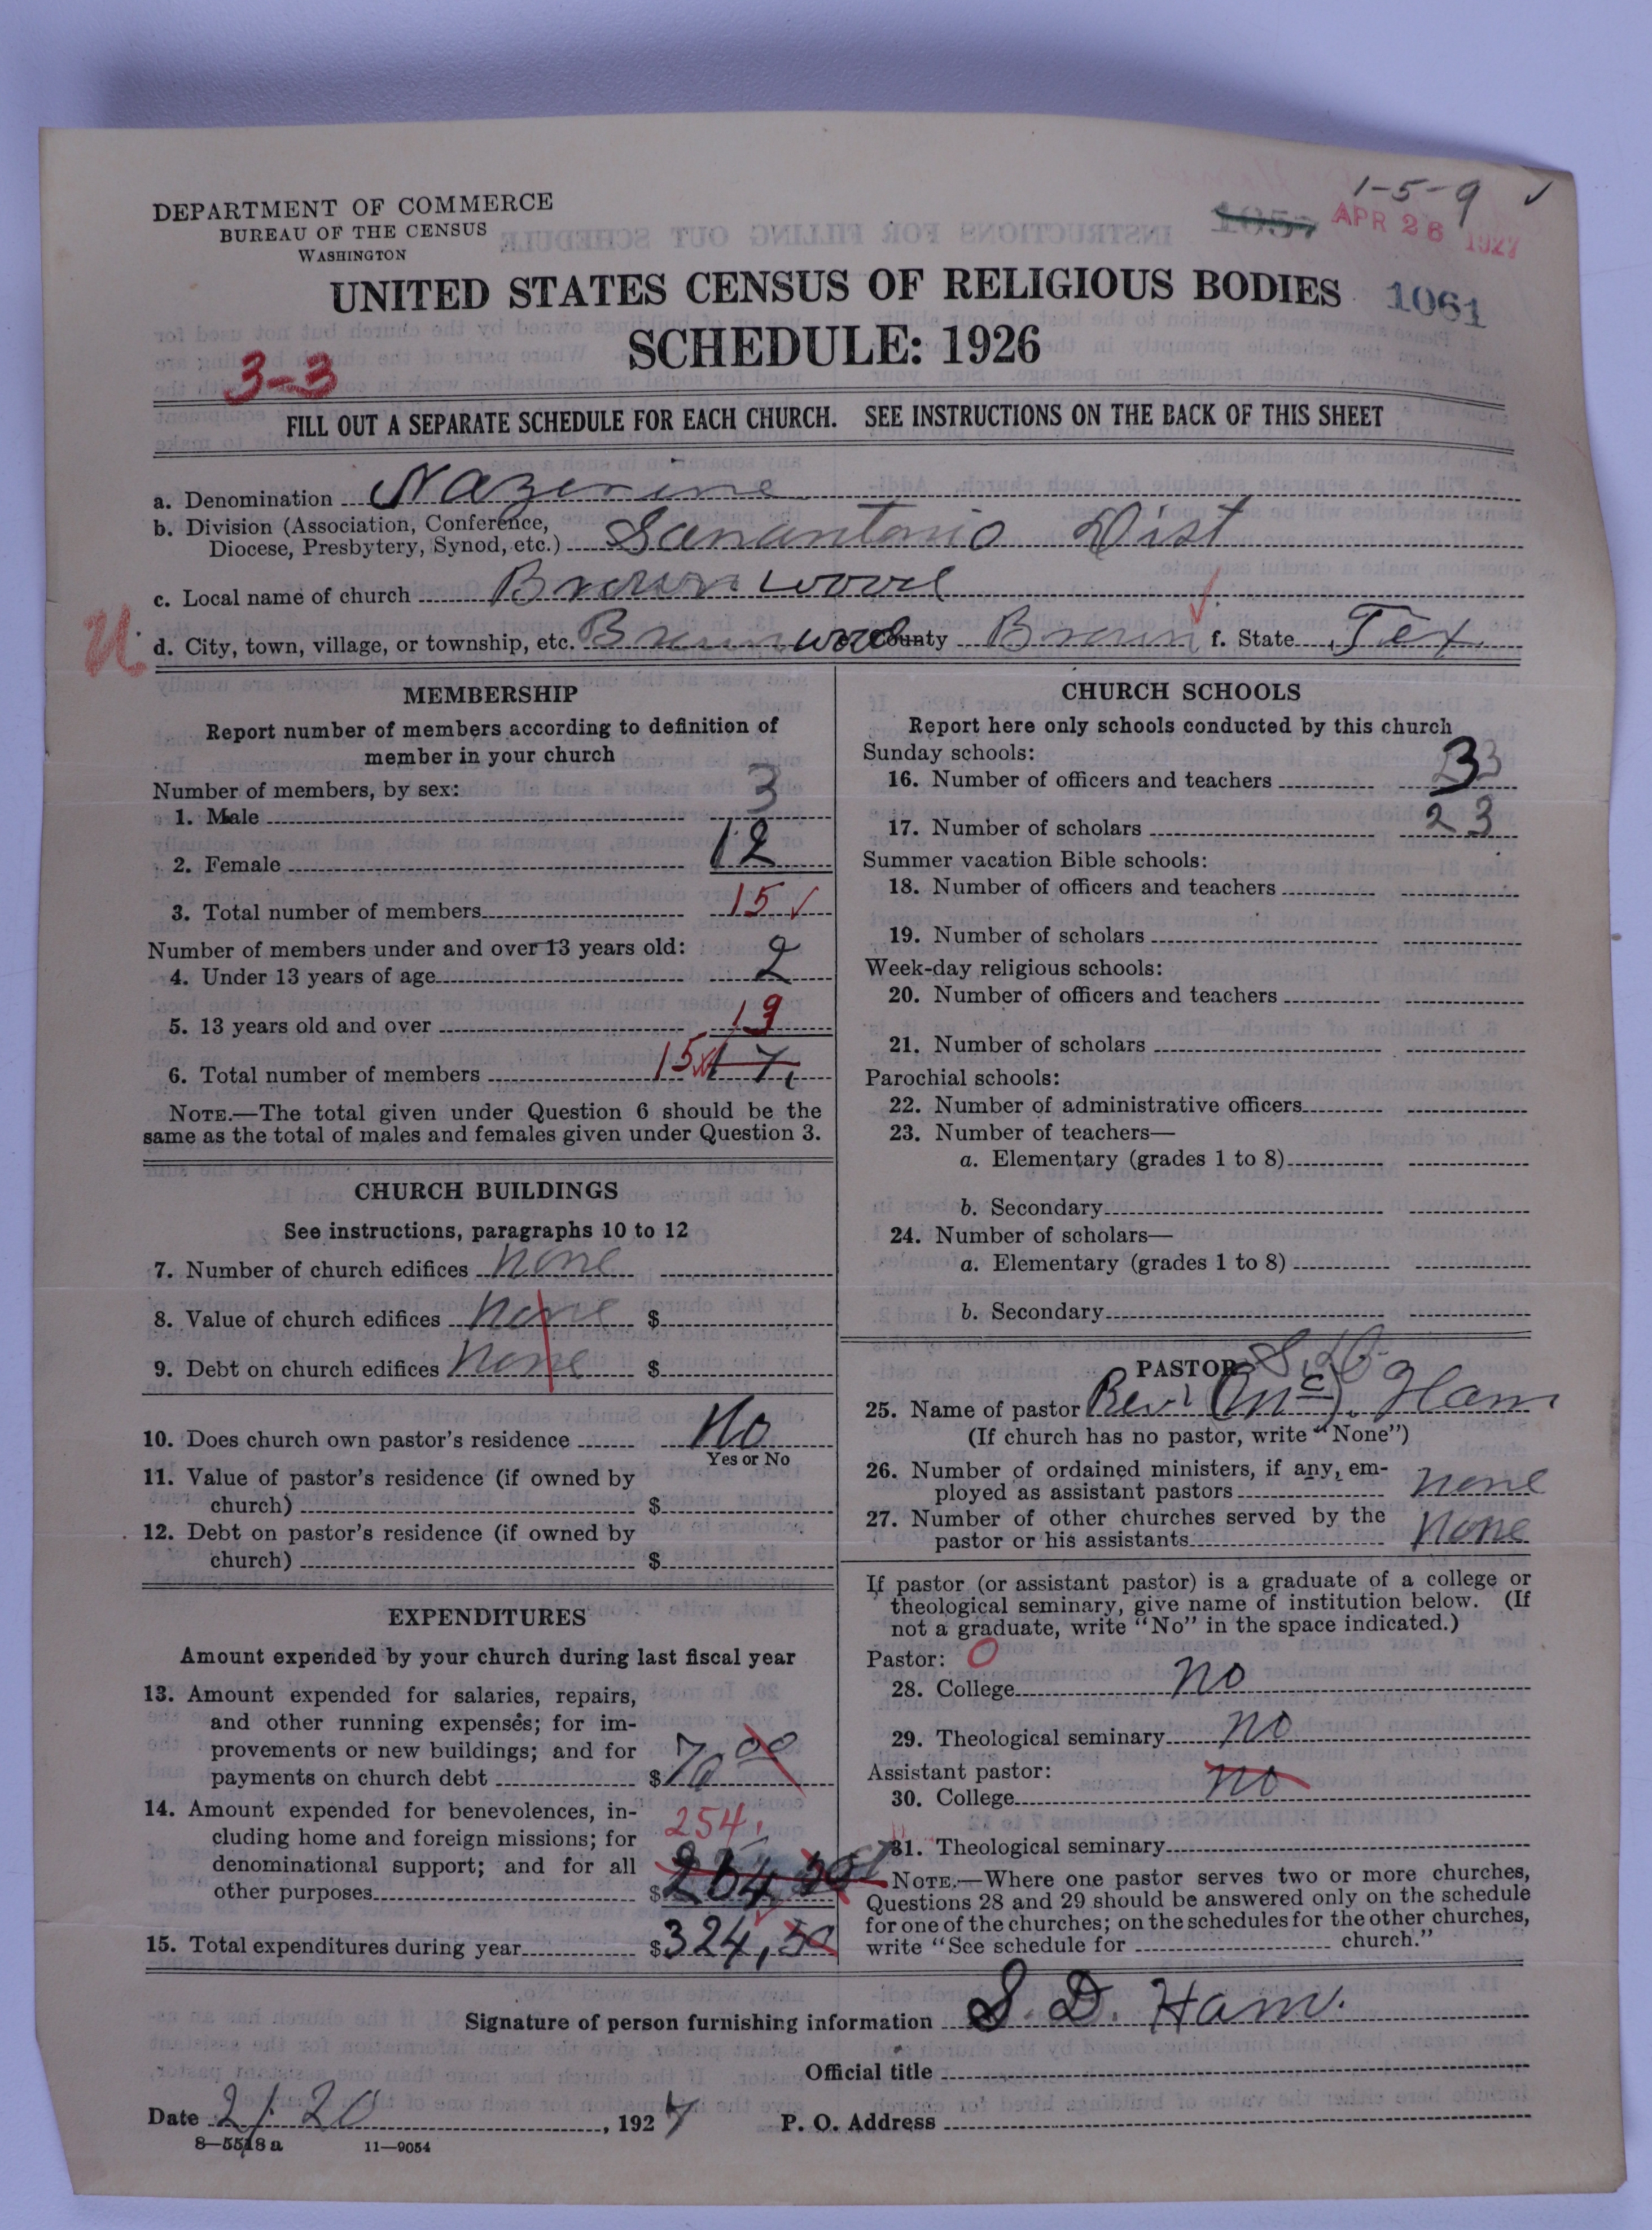 1-5-9 ✓
DEPARTMENT OF COMMERCE
BUREAU OF THE CENSUS
WASHINGTON
1057 APR 26 1927
UNITED STATES CENSUS OF RELIGIOUS BODIES 1061
SCHEDULE: 1926
3-3
FILL OUT A SEPARATE SCHEDULE FOR EACH CHURCH. SEE INSTRUCTIONS ON THE BACK OF THIS SHEET
a. Denomination Nazerine
b. Division (Association, Conference,
Diocese, Presbytery, Synod, etc.) Sanantonio Dist
c. Local name of church Brownwood
d. City, town, village, or township, etc. Brownwood County Brown f. State Tex.
MEMBERSHIP
Report number of members according to definition of
member in your church
Number of members, by sex:
1. Male 3
2. Female 12
3. Total number of members 15 ✓
Number of members under and over 13 years old:
4. Under 13 years of age 2
5. 13 years old and over 13
6. Total number of members 15 17
NOTE.—The total given under Question 6 should be the
same as the total of males and females given under Question 3.
CHURCH BUILDINGS
See instructions, paragraphs 10 to 12
7. Number of church edifices none
8. Value of church edifices none $
9. Debt on church edifices none $
10. Does church own pastor's residence No
Yes or No
11. Value of pastor's residence (if owned by
church) $
12. Debt on pastor's residence (if owned by
church) $
EXPENDITURES
Amount expended by your church during last fiscal year
13. Amount expended for salaries, repairs,
and other running expenses; for im-
provements or new buildings; and for
payments on church debt $70 00
14. Amount expended for benevolences, in-
cluding home and foreign missions; for
denominational support; and for all
other purposes 254. $254,50
15. Total expenditures during year $324,50
CHURCH SCHOOLS
Report here only schools conducted by this church
Sunday schools:
16. Number of officers and teachers 3
17. Number of scholars 23
Summer vacation Bible schools:
18. Number of officers and teachers
19. Number of scholars
Week-day religious schools:
20. Number of officers and teachers
21. Number of scholars
Parochial schools:
22. Number of administrative officers
23. Number of teachers—
a. Elementary (grades 1 to 8)
b. Secondary
24. Number of scholars—
a. Elementary (grades 1 to 8)
b. Secondary
PASTOR S. D.
25. Name of pastor Rev. (Mc). Ham
(If church has no pastor, write "None")
26. Number of ordained ministers, if any, em-
ployed as assistant pastors none
27. Number of other churches served by the
pastor or his assistants none
If pastor (or assistant pastor) is a graduate of a college or
theological seminary, give name of institution below. (If
not a graduate, write "No" in the space indicated.)
Pastor: O
28. College no
29. Theological seminary no
Assistant pastor:
30. College no
31. Theological seminary
NOTE.—Where one pastor serves two or more churches,
Questions 28 and 29 should be answered only on the schedule
for one of the churches; on the schedules for the other churches,
write "See schedule for church."
Signature of person furnishing information S. D. Ham.
Official title
Date 2/20, 1927 P. O. Address
8—5518a 11—9054